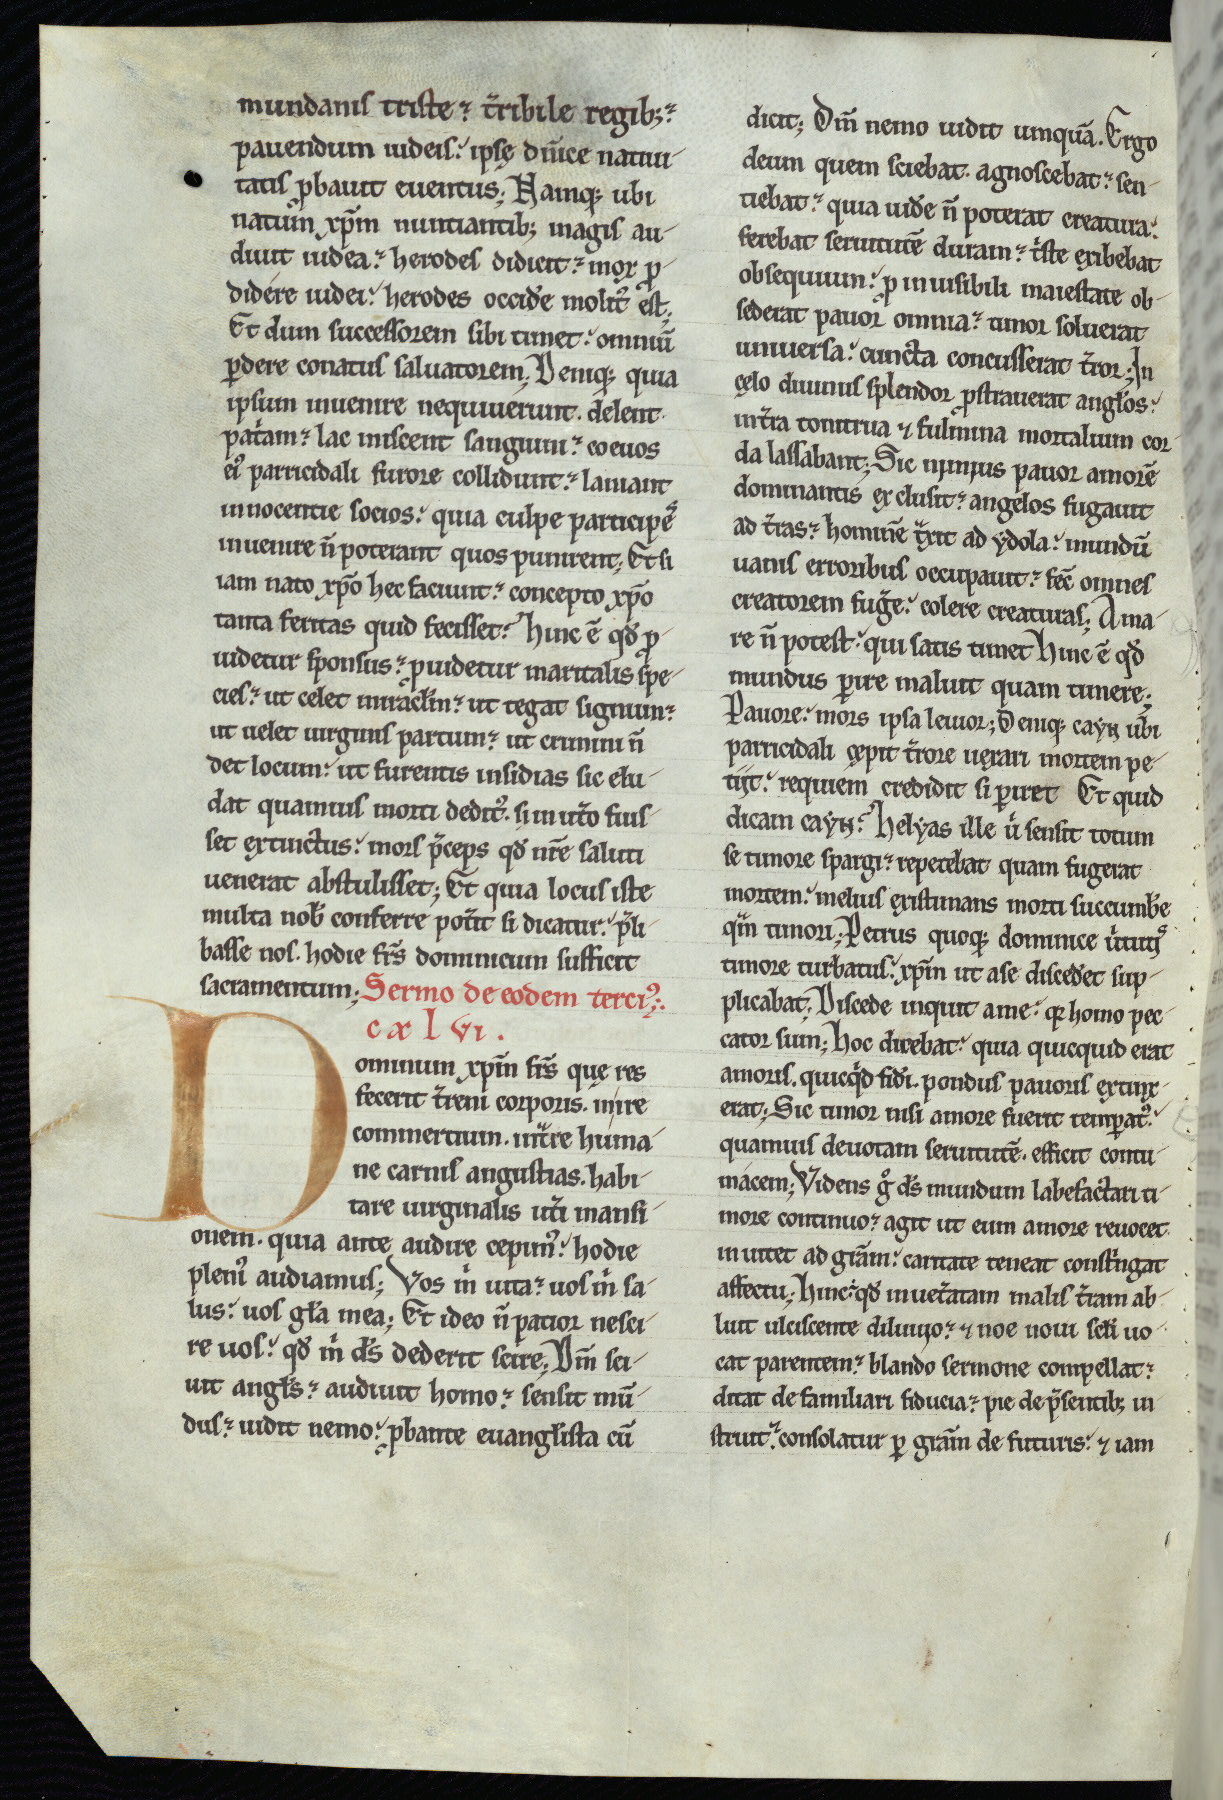 mundanis triste ⁊ t̄ribile regib;
pauendum iudeis. ipsę dn̄ice natiui-
tatis ꝓbauit euentus; Namq; ubi
natum xp̄m nuntiantib; magis au-
diuit iudea. herodes didicit. mox ꝓ-
didere iudei. herodes occidꝰe molit᷒ est;
Et dum successorem sibi timet. omniū
ꝑdere conatus saluatorem; Deniq; quia
ipsum inuenire nequiuerunt. delent
pat̄am. lac miscent sanguini. coeuos
ei᷒ parricidali furore collidunt. laniant
innocentie socios. quia culpe participē
inuenire n̄ poterant quos punirent; Et si
iam nato xp̄o hec faciunt. concepto xp̄o
tanta feritas quid fecisset? Hinc ē qđ ꝓ-
uidetur sponsus. ꝓuidetur maritalis spe-
cies. ut celet miracl̄m. ut tegat signum.
ut uelet uirginis partum. ut crimini n̄
det locum. ut furentis insidias sic elu-
dat quamuis morti dedit᷒. si in ut̄o fuis-
set extinctus. mors p̄ceps qđ nr̄e saluti
uenerat abstulisset; Et quia locus iste
multa nob̄ conferre pot̄it si dicatur. p̄li-
basse nos. hodie fr̄s dominicum sufficit
sacramentum; Sermo de eodem terci᷒;.
c x l vi.
Dominum xp̄m fr̄s que res
fecerit t̄reni corporis. inire
commertium. int̄re huma-
ne carnis angustias. habi-
tare uirginalis ut̄i mansi-
onem. quia ante audire cepim᷒. hodie
pleni᷒ audiamus; Vos m̄ uita. uos m̄ sa-
lus. uos gl̄a mea; Et ideo n̄ patior nesci-
re uos. qđ m̄ d̄s dederit scire; Dm̄ sci-
uit angl̄s. audiuit homo. sensit mū-
dus. uidit nemo. ꝓbante euangl̄ista cū
dicit; Dm̄ nemo uidit umquā. Ergo
deum quem sciebat. agnoscebat. sen-
tiebat. quia uidꝰe n̄ poterat creatura.
ferebat seruitutē duram. t̄ste exibebat
obsequium. ꝓ inuisibili maiestate ob-
sederat pauor omnia. timor soluerat
uniuersa. cuncta concusserat t̄ror; In
cęlo diuinis splendor ꝓstrauerat angl̄os.
int̄ra tonitrua ⁊ fulmina mortalium cor-
da lassabant; Sic nimius pauor amorē
dominantis exclusit. angelos fugauit
ad t̄ras. hominē t̄xit ad ydola. mundū
uanis erroribus occupauit. fec̄ omnes
creatorem fuḡe. colere creaturas; Ama-
re n̄ potest. qui satis timet Hinc ē qđ
mundus ꝑire maluit quam timere;
Pauore. mors ipsa leuior; Deniq; cayn ubi
parricidali cępit t̄rore uexari mortem pe-
tiit. requiem credidit si ꝑiret Et quid
dicam cayn? Helyas ille ū sensit totum
se timore spargi. repetebat quam fugerat
mortem. melius existimans morti succumbꝰe
qm̄ timori; Petrus quoq; dominice ūtutis
timore turbatus. xp̄m ut a se discedꝰet sup-
plicabat; Discede inquit a me. qꝛ homo pec-
cator sum; Hoc dicebat. quia quicquid erat
amoris. quicqd fidꝰi. pondus pauoris extinx-
erat; Sic timor nisi amore fuerit temꝑat᷒.
quamuis deuotam seruitutē. efficit contu-
macem; Videns ḡ d̄s mundum labefactari ti-
more continuo. agit ut eum amore reuocet
inuitet ad gr̄am. caritate teneat constꝰngat
affectu; Hinc qđ inuet̄atam malis t̄ram ab-
luit ulciscente diluuio. ⁊ noe noui scl̄i uo-
cat parentem. blando sermone compellat.
ditat de familiari fiducia. pie de p̄sentib; in-
struit. consolatur ꝑ gr̄am de futuris. ⁊ iam